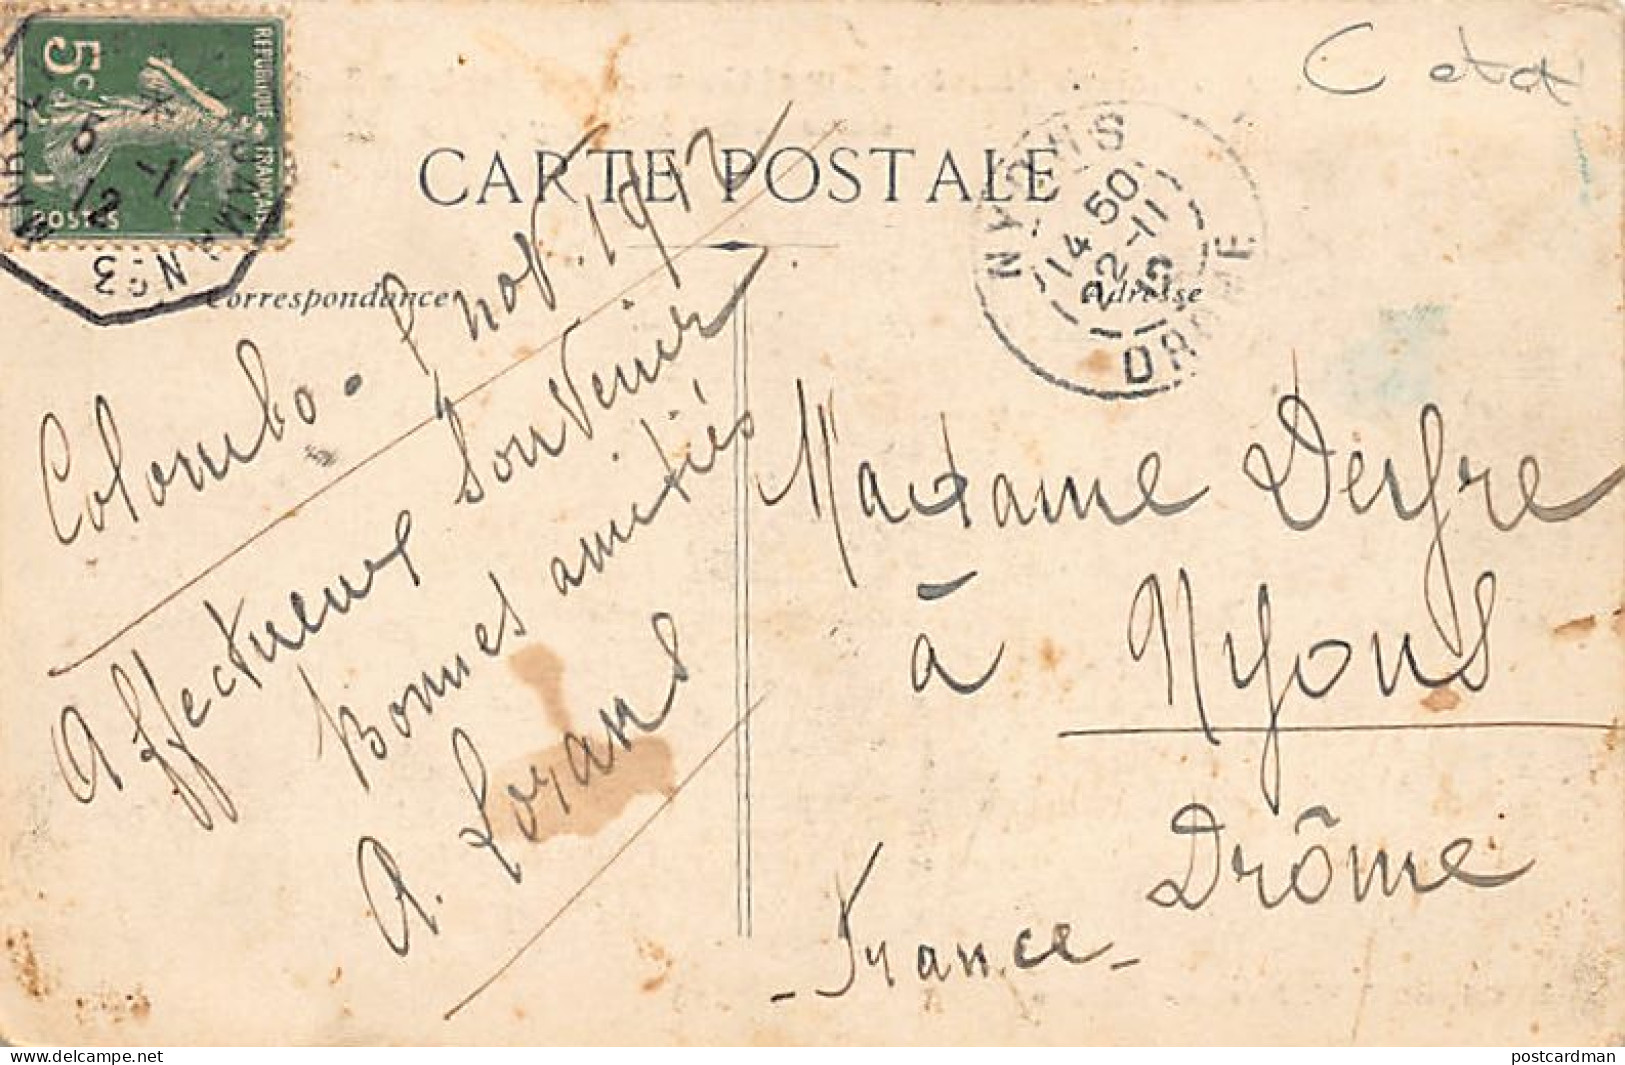 C etat
RÉPUBLIQUE FRANÇAISE
5c
POSTES
5 -11
12
Nº3
CARTE POSTALE
NYONS
14 50
22-11
12
DROME
Correspondance
Adresse
Colombo - 5 nov. 1912
Affectueux Souvenir
Bonnes amitiés
A. Loyans
Madame Deyfre
à Nyons
Drôme
- France -
postcardman